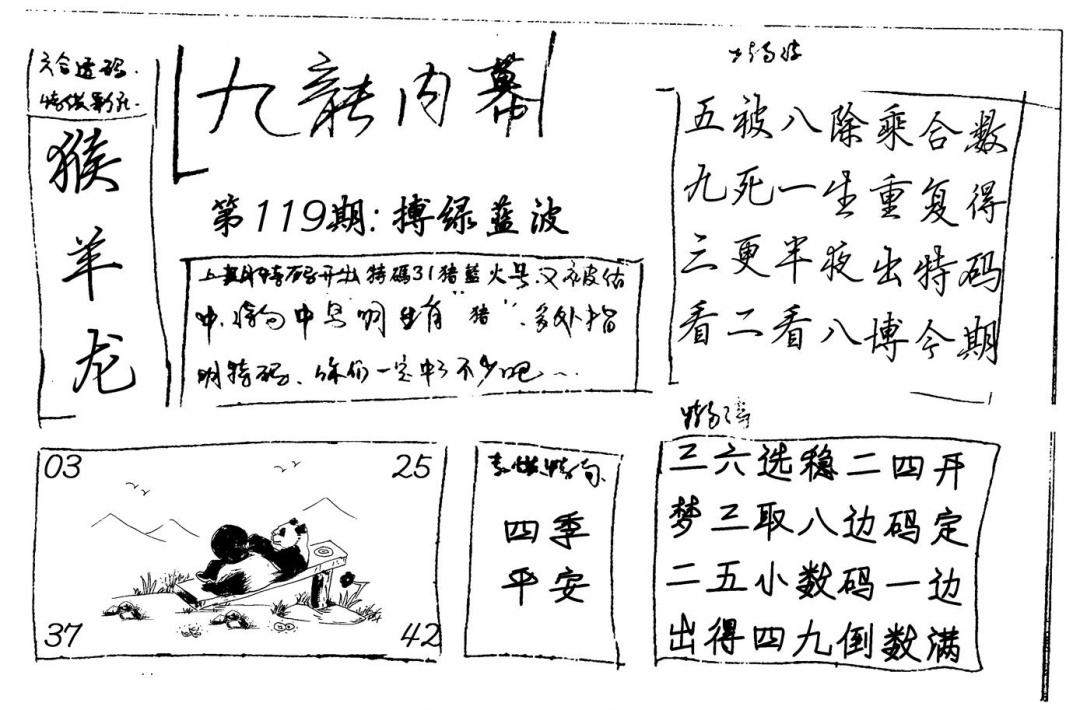 六合透码
猴
羊
龙
九龍内幕
第119期:搏绿蓝波
上期特码开出特碼31猪藍火号又被估
中,特句中号明生肖“猪”,多处指
明特码、你们一定中了不少吧
五被八除乘合数
九死一生重复得
三更半夜出特码
看二看八博今期
03
25
37
42
四季
平安
三六选稳二四开
梦三取八边码定
二五小数码一边
出得四九倒数满